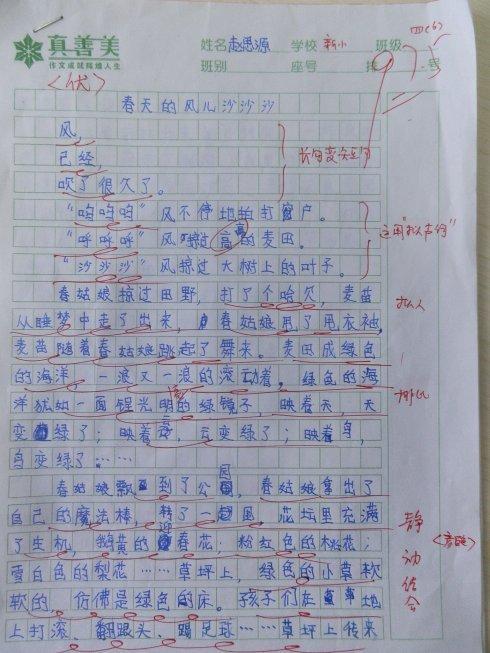 真善美
作文成就辉煌人生
姓名 赵思源 学校 新小 班级 四(6)
班别 座号 号
<优>
春天的风儿沙沙沙
风，
已经，
吹了很久了。
长句变短句
“呜呜呜”风不停地拍打窗户。
“呼呼呼”风掠过高高的麦田。
运用“拟声词”
“沙沙沙”风掠过大树上的叶子。
春姑娘掠过田野，打了个哈欠，麦苗
拟人
从睡梦中走了出来，春姑娘甩了甩衣袖，
麦苗随着春姑娘跳起了舞来。麦田成绿色
的海洋，一浪又一浪的滚动着。绿色的海
洋犹如一面锃光明亮的绿镜子，映着天，天
排比
变绿了；映着云，云变绿了；映着鸟，
鸟变绿了……
春姑娘飘到了公园，春姑娘拿出了
自己的魔法棒，转了一圈，花坛里充满
了生机，鹅黄的迎春花；粉红色的桃花；
雪白色的梨花……草坪上，绿色的小草软
软的，仿佛是绿色的床。孩子们在草地
静动结合
上打滚、翻跟头、踢足球……草坪上传来